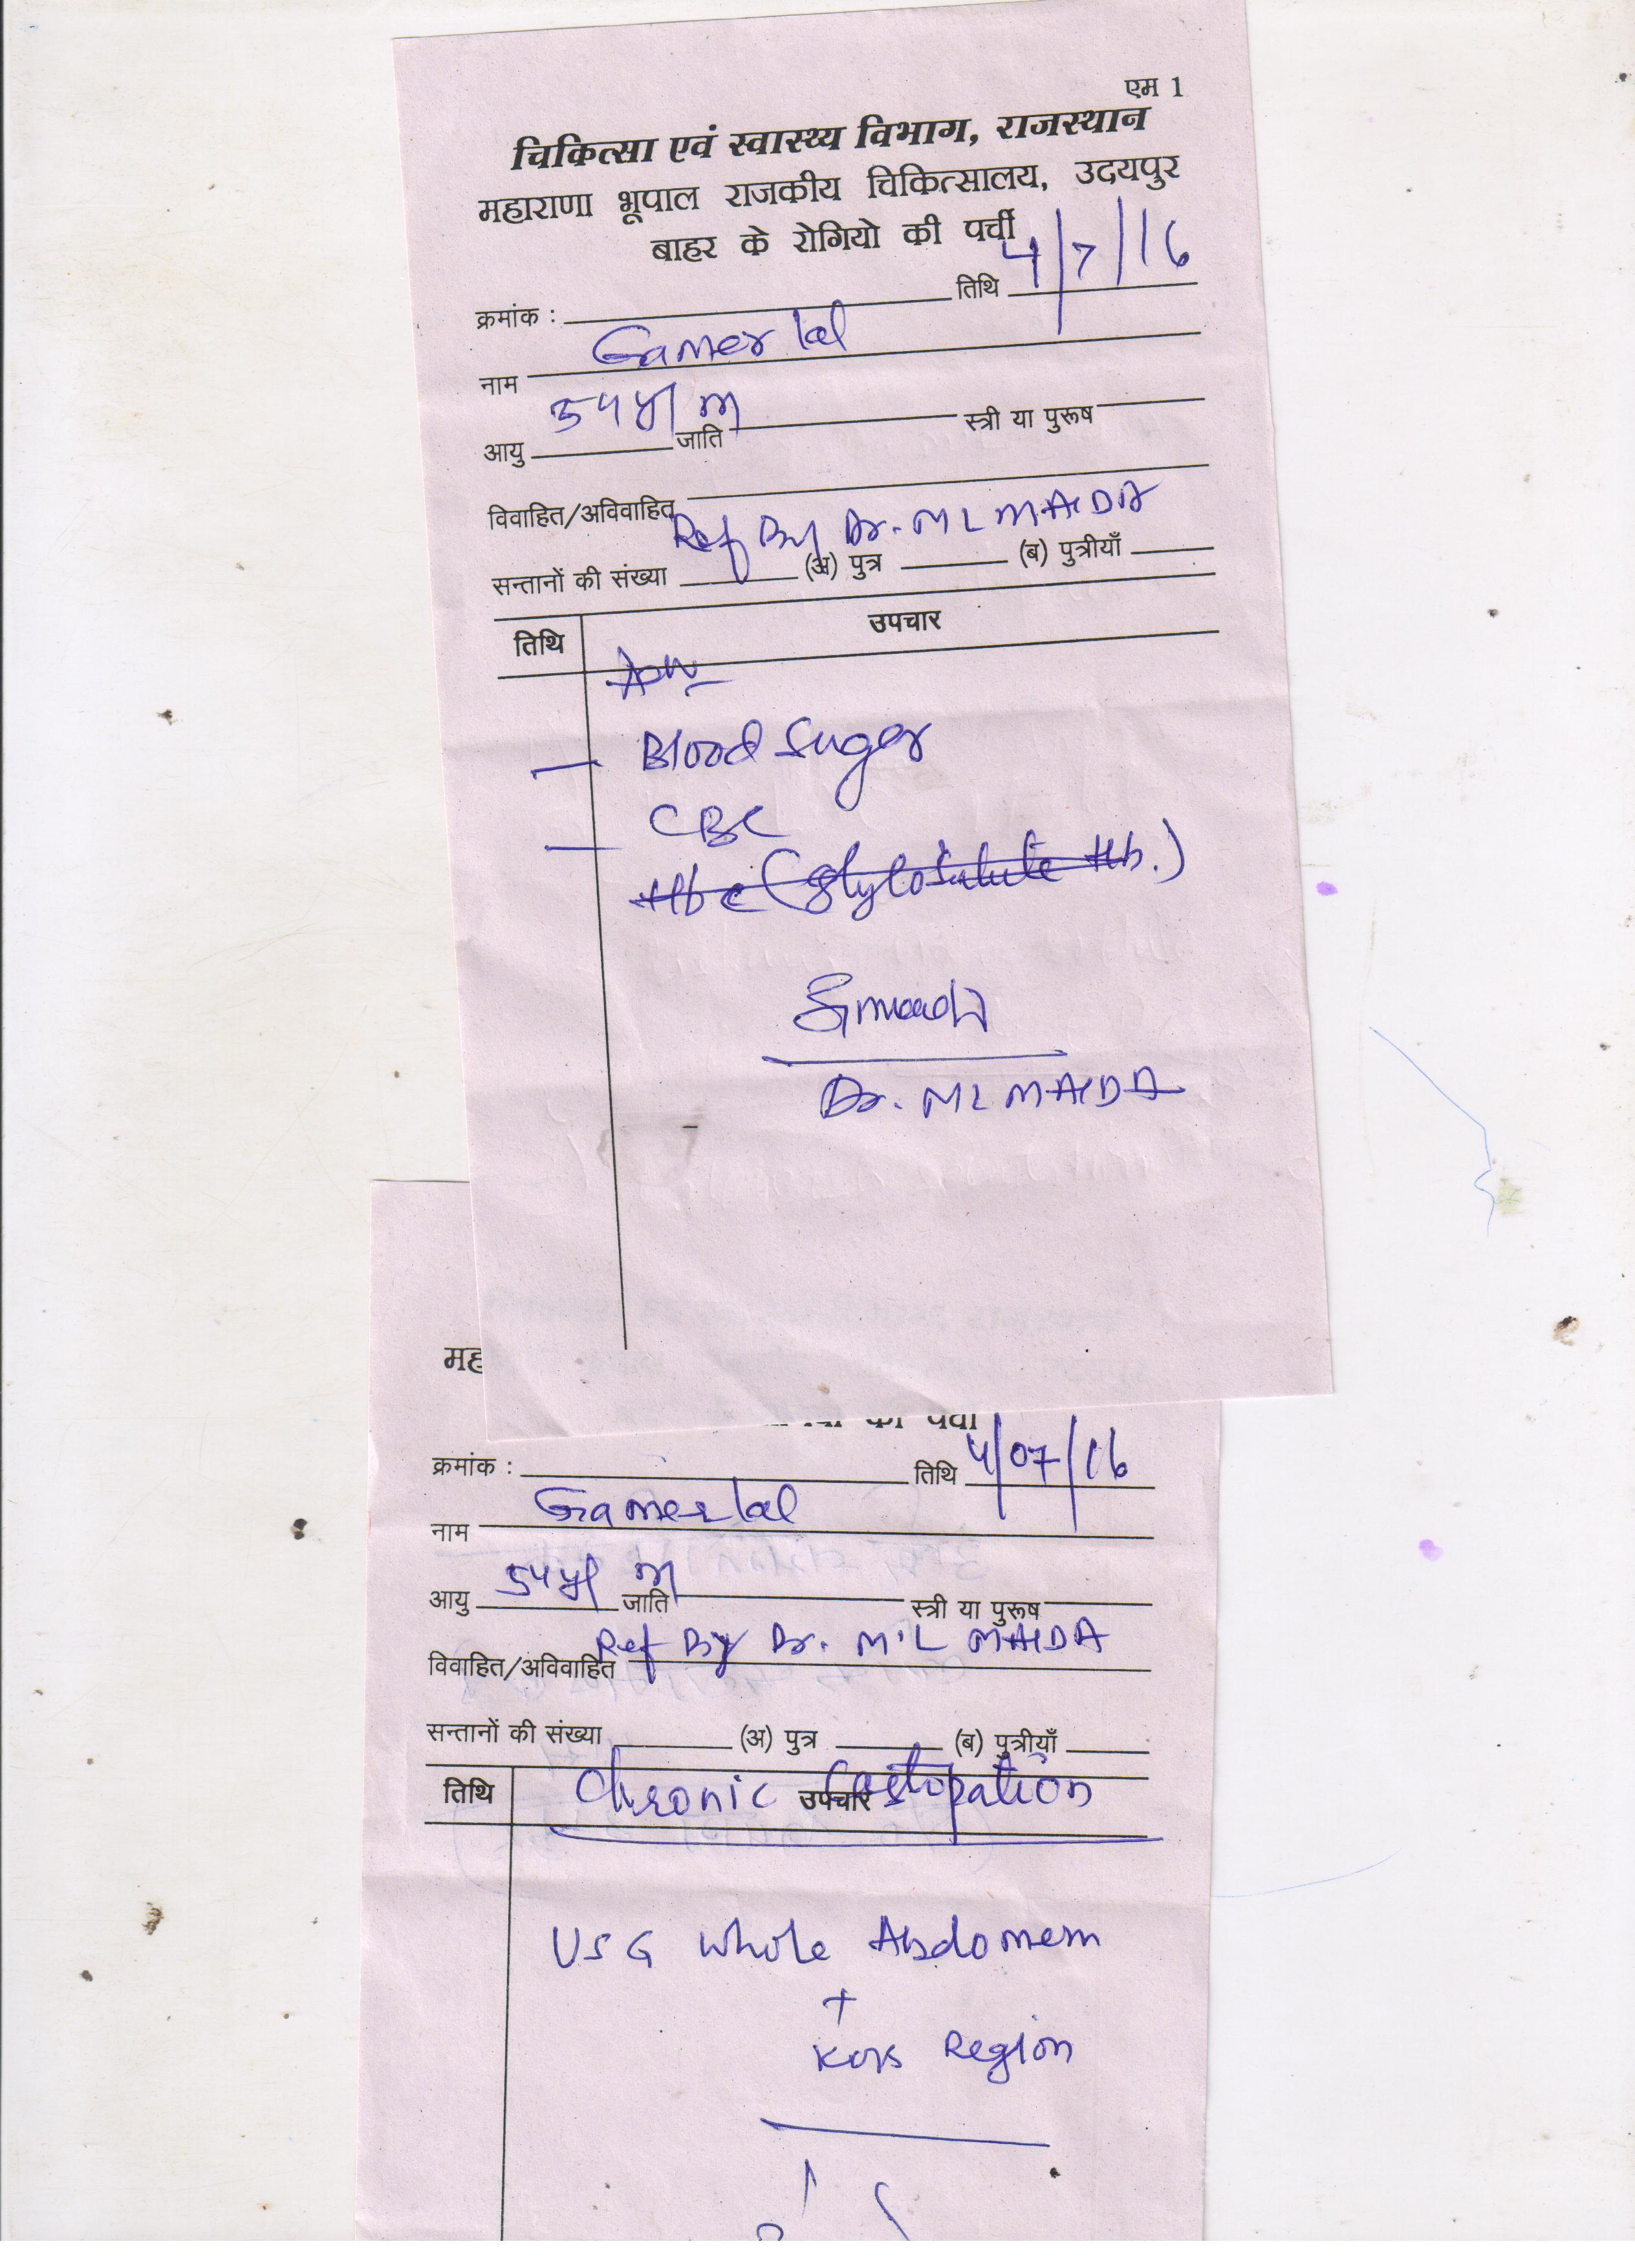 एम 1
चिकित्सा एवं स्वास्थ्य विभाग, राजस्थान
महाराणा भूपाल राजकीय चिकित्सालय, उदयपुर
बाहर के रोगियो की पर्ची
क्रमांक : तिथि 4/7/16
नाम Gamer lal
आयु 54 y/ m जाति स्त्री या पुरूष
विवाहित/अविवाहित
Ref By Dr. M L MAIDA
सन्तानों की संख्या (अ) पुत्र (ब) पुत्रीयाँ
तिथि उपचार
Adv
Blood Suger
CBC
Hb c (Glylosulute Hb.)
Dr. M L MAIDA
मह
क्रमांक : तिथि 4/07/16
नाम Gamer lal
आयु 54 y/ m जाति स्त्री या पुरूष
Ref By Dr. M.L MAIDA
विवाहित/अविवाहित
सन्तानों की संख्या (अ) पुत्र (ब) पुत्रीयाँ
तिथि उपचार
Chronic Costopation
USG Whole Abdomem
+
KUB Region